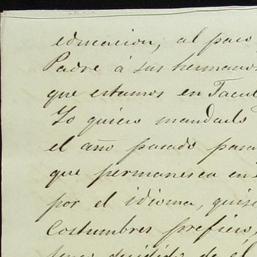 educacion, al paso
Padre á sus hermanos
que estamos en Tacu
Yo quiero mandarle
el año pasado para
que permanesca en
por el idioma, quise
costumbres prefiero,